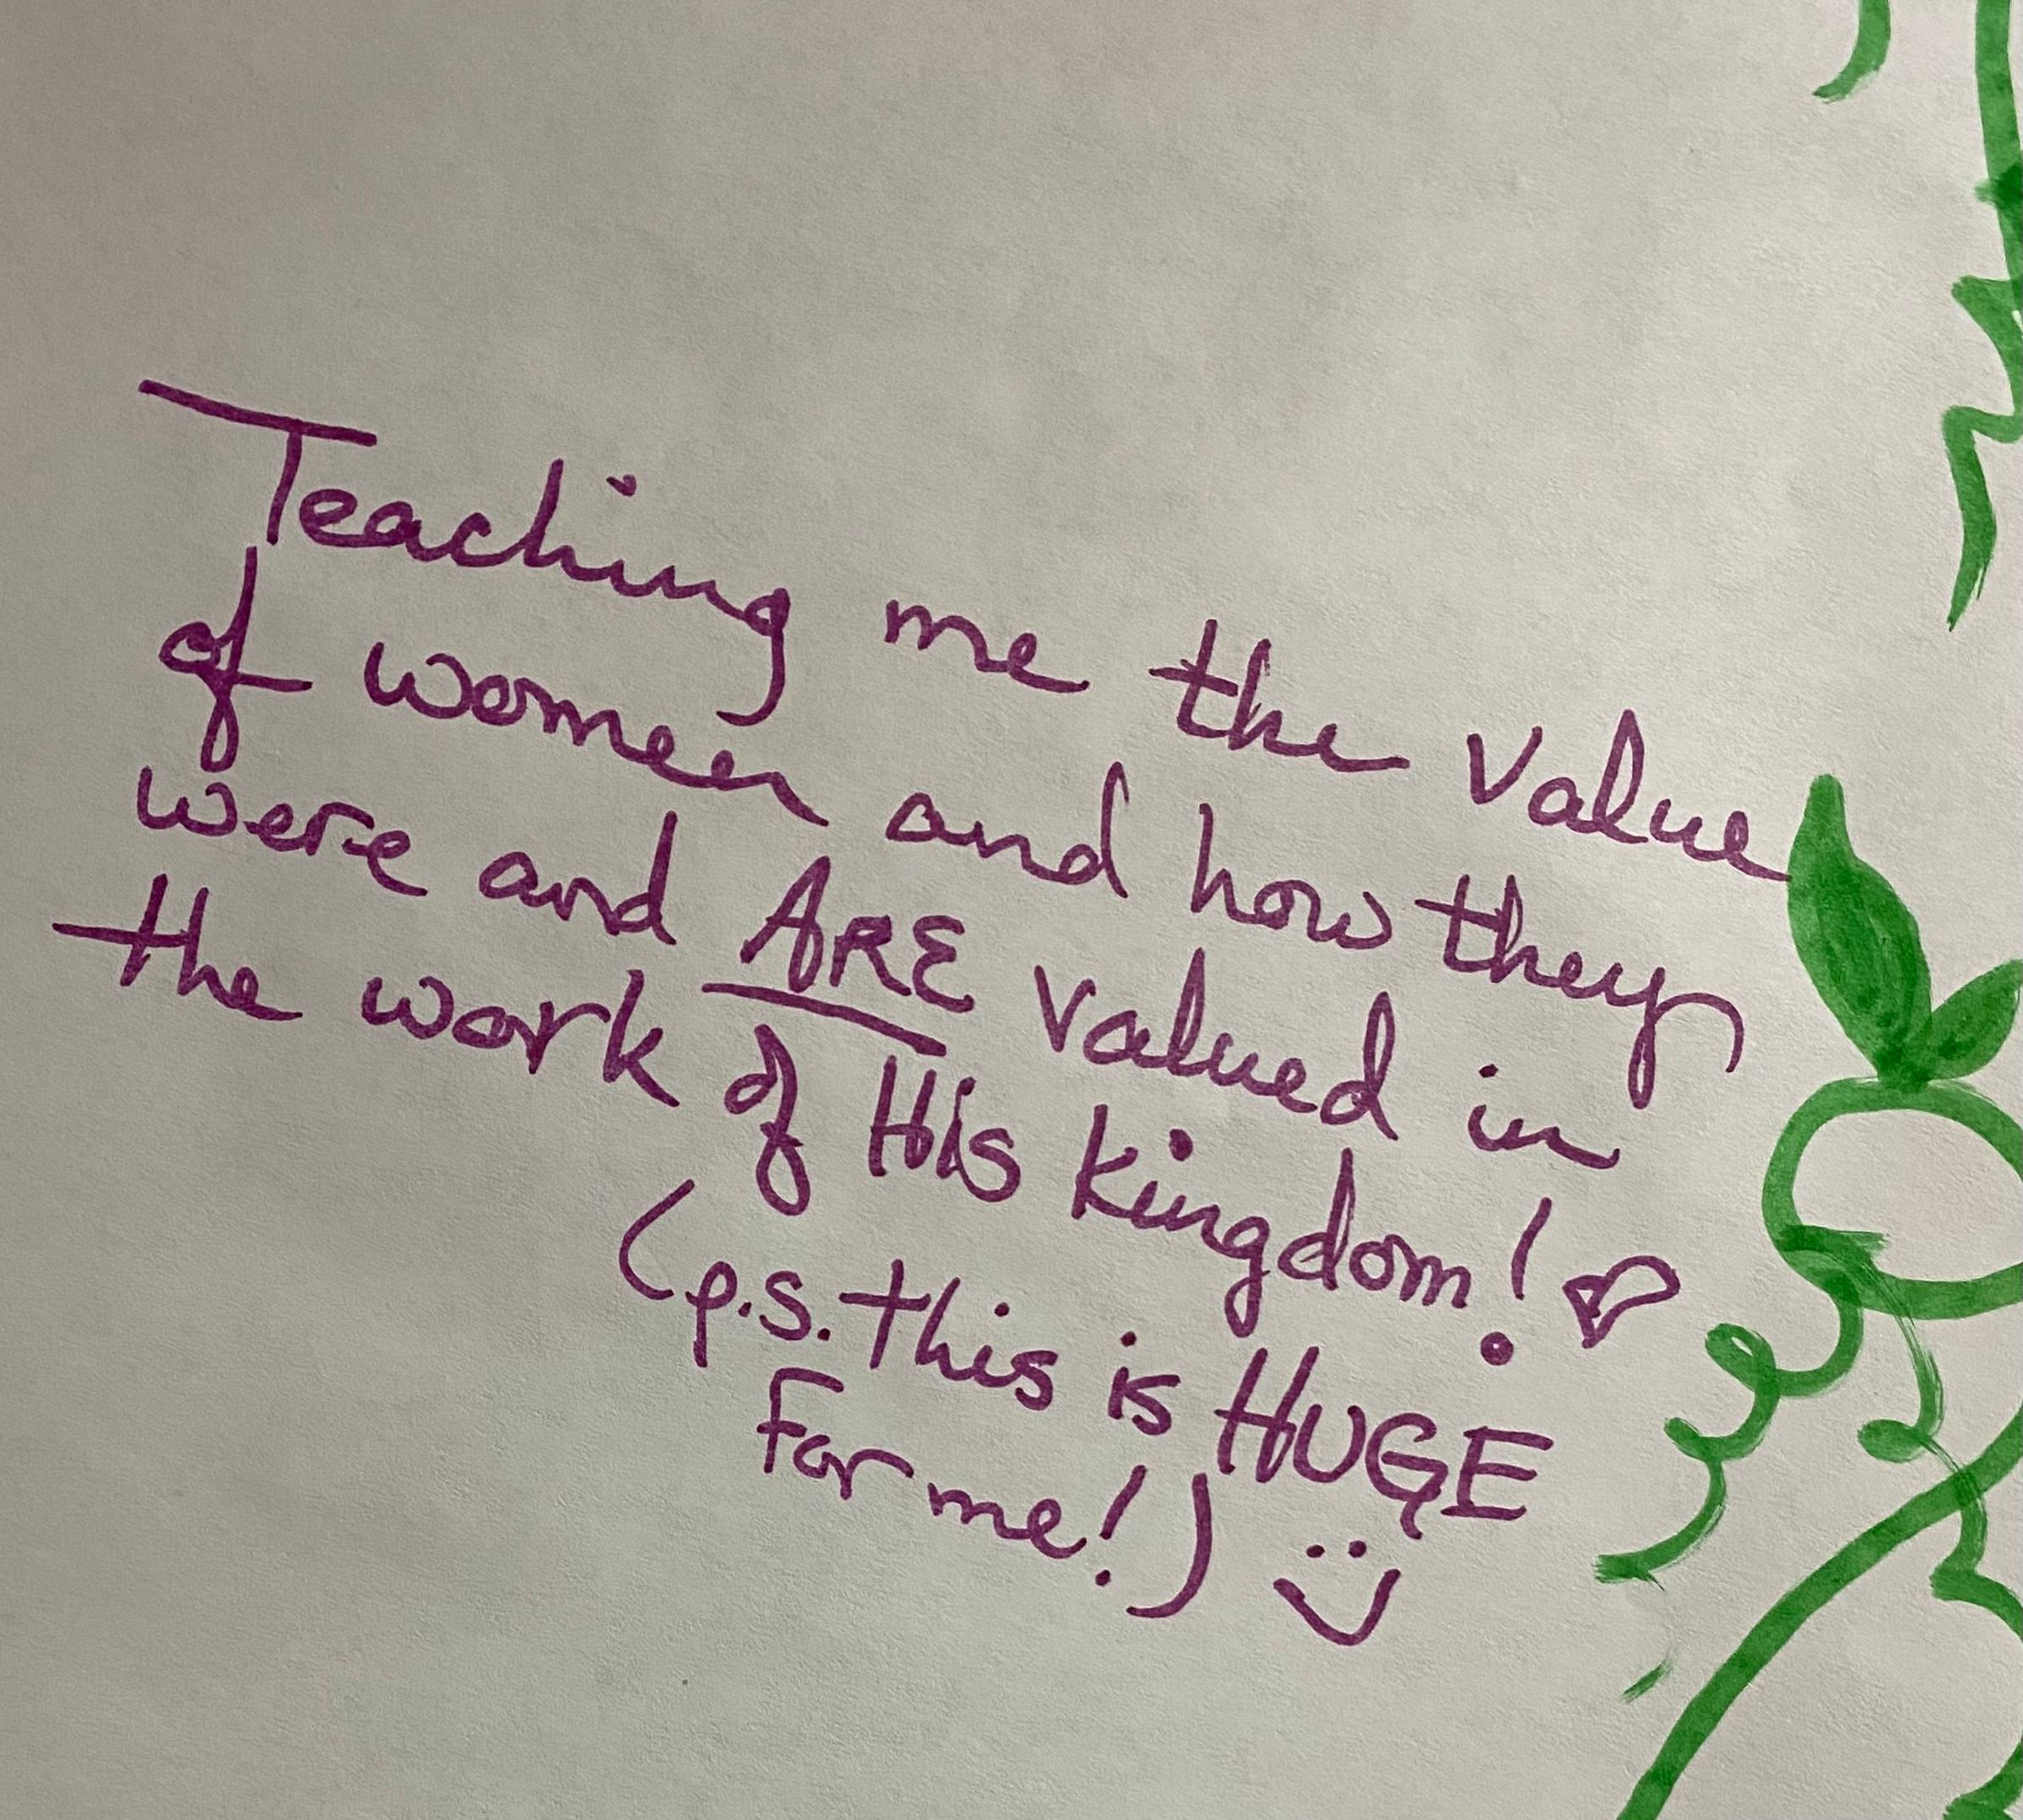 Teaching me the value
of women and how they
were and ARE valued in
the work of His kingdom!
(p.s. this is HUGE
for me!)